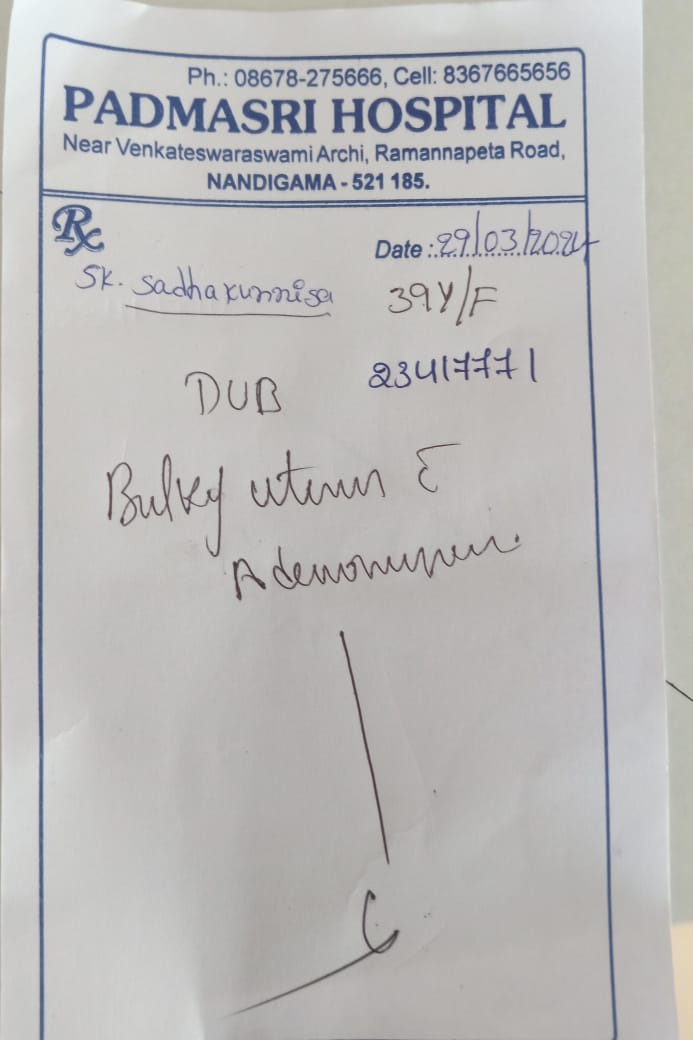 Ph.: 08678-275666, Cell: 8367665656
PADMASRI HOSPITAL
Near Venkateswaraswami Archi, Ramannapeta Road,
NANDIGAMA - 521 185.
Rx
Date : 29/03/2024
SK. Sadhakunnisa 39Y/F
23417771
DUB
Bulky uterus c̅